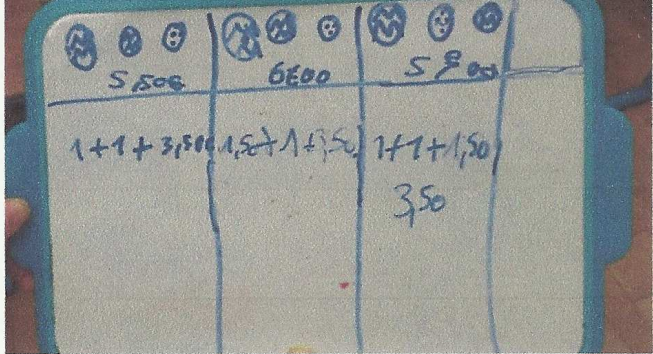 5,50€ 6€00 5€00
1+1+3,50 1,50+1+3,50 1+1+1,50
3,50